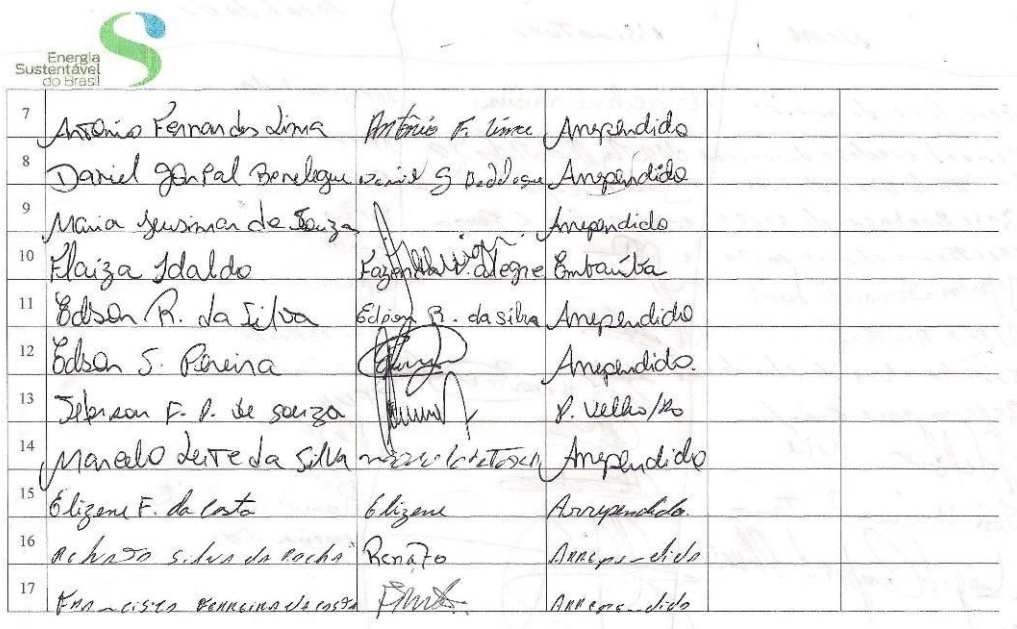 Energia
Sustentável
do Brasil
7 Antônio Fernandes Lima Antônio F. Lima Arrependido
8 Daniel Arrependido
9 Maria de Souza Arrependido
10 Idaldo Fazenda alegre Embaúba
11 Edson R. da Silva Edson R. da silva Arrependido
12 Edson S. Pereira Arrependido.
13 F. P. de souza P. Velho/Ro
14 Marcelo Leite da Silva Arrependido
15 Elizene F. da Costa Elizene Arrependido.
16 Renato Silva da Rocha Renato Arrependido
17 Francisco Ferreira da costa Arrependido